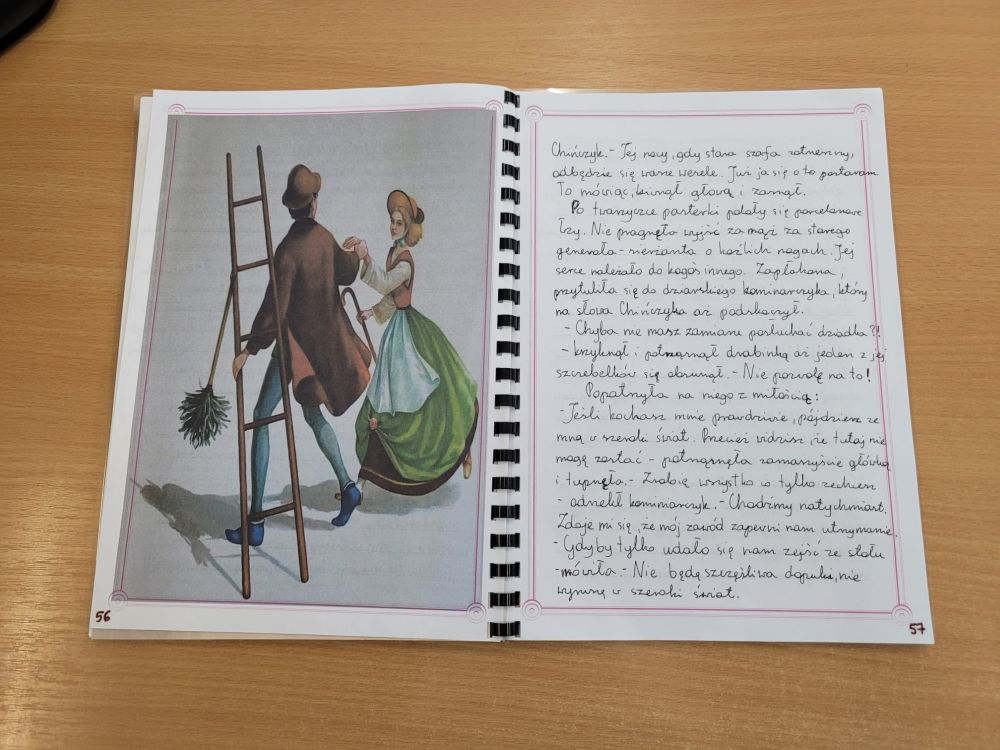 Chińczyk. - Tej nocy, gdy stara szafa zatrzeszczy,
odbędzie się wasze wesele. Już ja się o to postaram.
To mówiąc, kiwnął głową i zasnął.
Po twarzyczce pasterki polały się porcelanowe
łzy. Nie pragnęła wyjść za mąż za starego
generała - sierżanta o koźlich nogach. Jej
serce należało do kogoś innego. Zapłakana,
przytuliła się do dziarskiego kominiarczyka, który
na słowa Chińczyka aż podskoczył.
- Chyba nie masz zamiaru posłuchać dziadka?!
- krzyknął i potrząsnął drabinką aż jeden z jej
szczebelków się obsunął. - Nie pozwolę na to!
Popatrzyła na niego z miłością:
- Jeśli kochasz mnie prawdziwie, pójdziesz ze
mną w szeroki świat. Przecież widzisz, że tutaj nie
mogę zostać - potrząsnęła zamaszyście główką
i tupnęła. - Zrobię wszystko co tylko zechcesz
- odrzekł kominiarczyk. - Chodźmy natychmiast.
Zdaje mi się, że mój zawód zapewni nam utrzymanie.
- Gdyby tylko udało się nam zejść ze stołu
- mówiła. - Nie będę szczęśliwa dopóki, nie
wyruszę w szeroki świat.
56
57